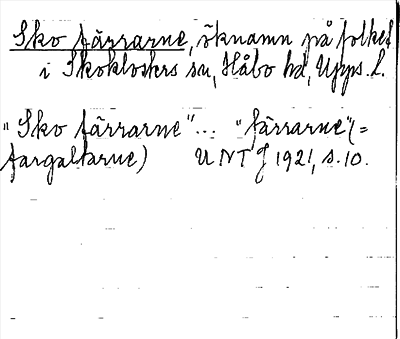 Sko färrarne, öknamn på folket
i Skoklosters sn, Håbo hd, Upps. l.
"Sko färrarne"... "färrarne" (=
fargaltarne) UNT J 1921, s. 10.